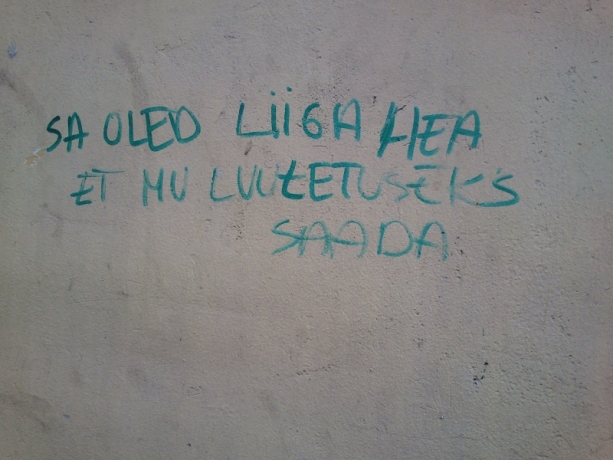 SA OLED LIIGA HEA
ET MU LUULETUSEKS
SAADA